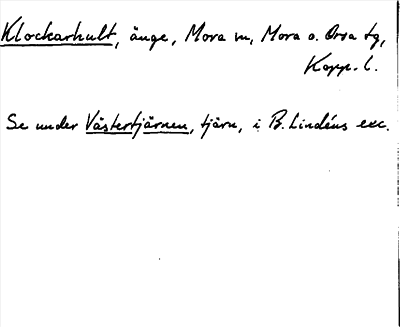 Klockarhult, änge, Mora sn, Mora o. Orsa tg,
Kopp. l.
Se under Västertjärnen, tjärn, i B. Lindéns exc.